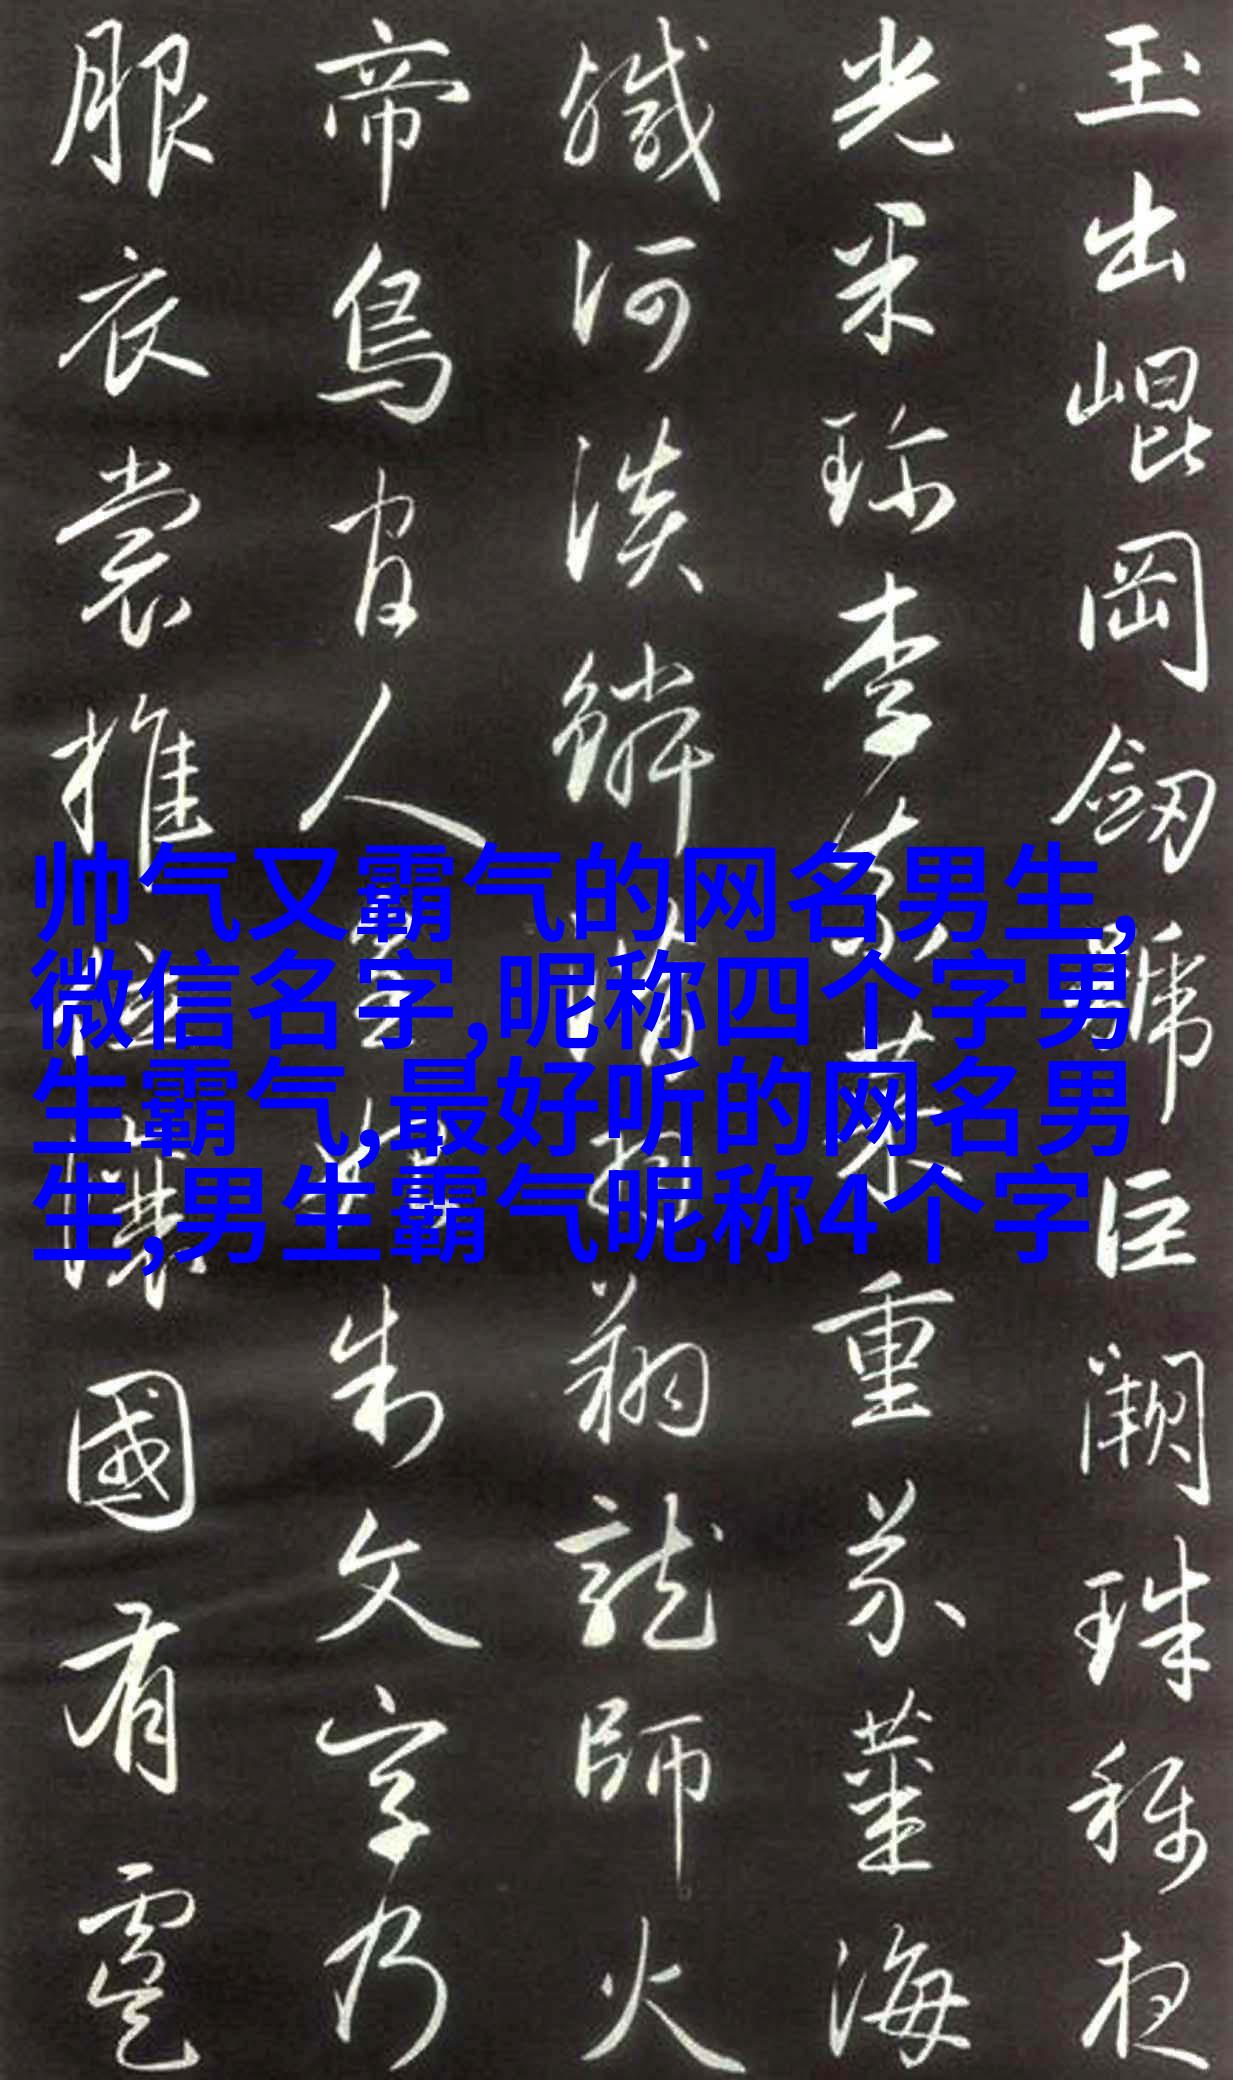 玉出崐岡劔號巨闕珠称夜
光果珍李柰菜重芥薑海
鹹河淡鱗潛羽翔龍師火
帝鳥官人皇始制文字乃
服衣裳推位讓國有虞
帅气又霸气的网名男生,
微信名字,昵称四个字男
生霸气,最好听的网名男
生,男生霸气昵称4个字